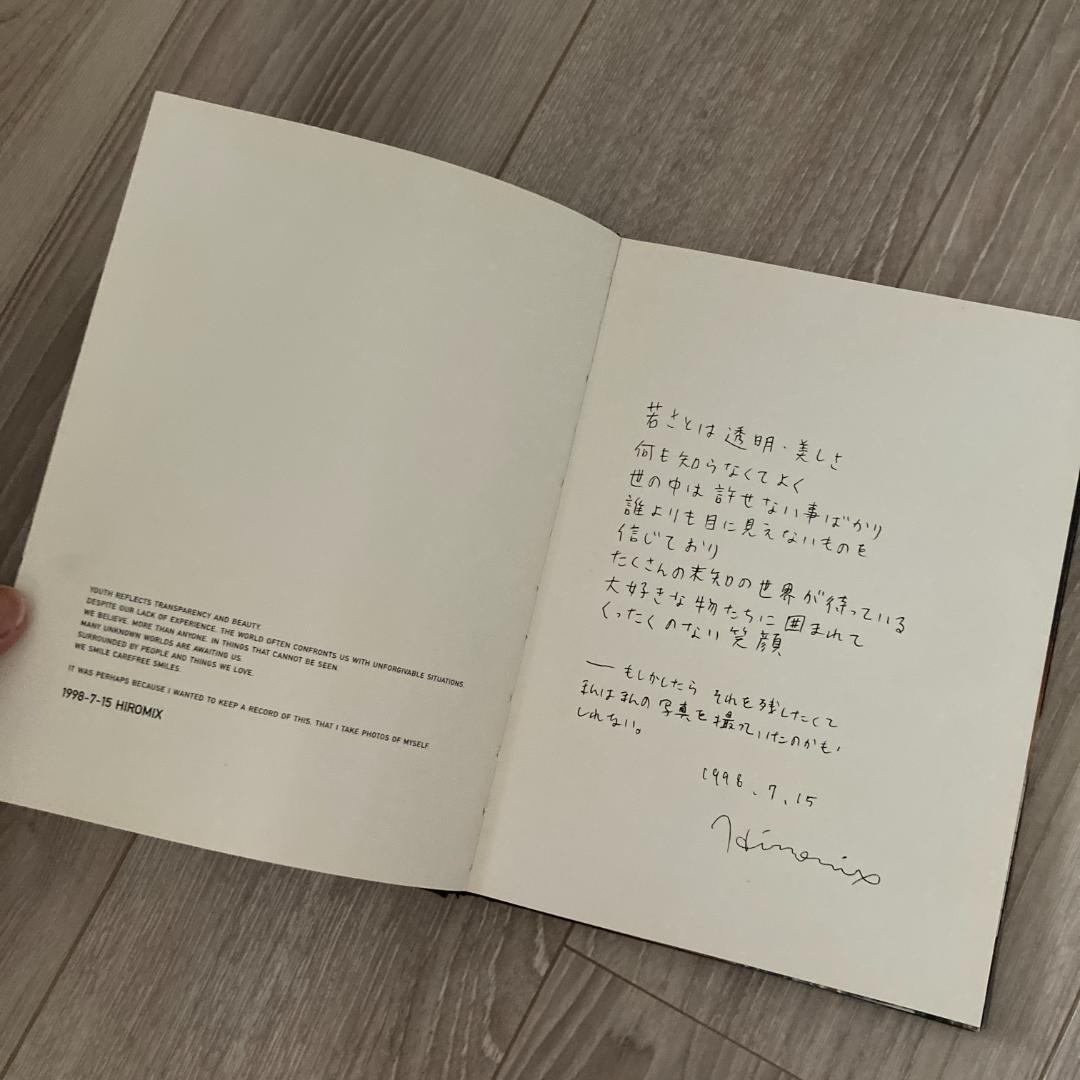 YOUTH REFLECTS TRANSPARENCY AND BEAUTY.
DESPITE OUR LACK OF EXPERIENCE. THE WORLD OFTEN CONFRONTS US WITH UNFORGIVABLE SITUATIONS.
WE BELIEVE, MORE THAN ANYONE, IN THINGS THAT CANNOT BE SEEN.
MANY UNKNOWN WORLDS ARE AWAITING US.
SURROUNDED BY PEOPLE AND THINGS WE LOVE.
WE SMILE CAREFREE SMILES.
IT WAS PERHAPS BECAUSE I WANTED TO KEEP A RECORD OF THIS, THAT I TAKE PHOTOS OF MYSELF.
1998-7-15 HIROMIX
若さとは透明・美しさ
何も知らなくてよく
世の中は許せない事ばかり
誰よりも目に見えないものを
信じており
たくさんの未知の世界が待っている
大好きな物たちに囲まれて
くったくのない笑顔
── もしかしたら それを残したくて
まんはまんの写真を撮っていたのかも
しれない。
1998.7.15
Hiromix